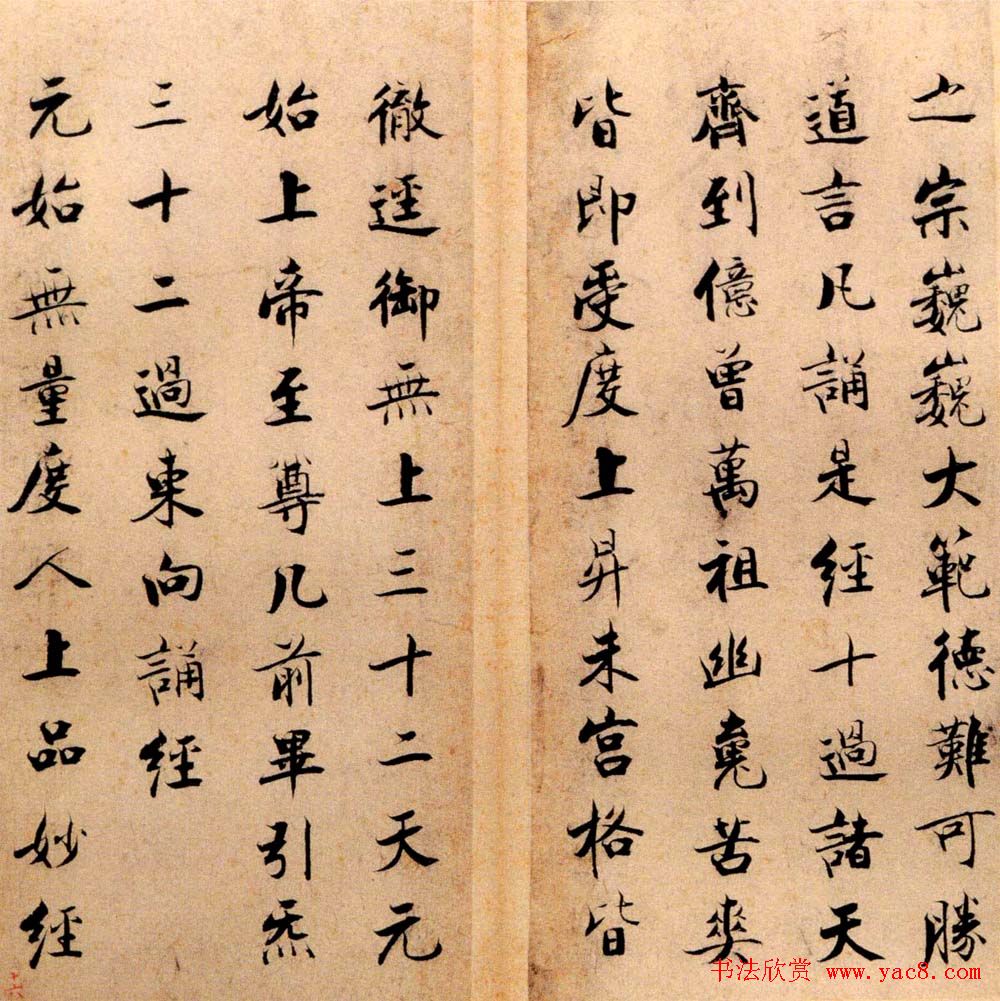 之宗巍巍大範德難可勝
道言凡誦是經十過諸天
齊到億曾萬祖幽魂苦爽
皆即受度上昇未宮格皆
徹逕御無上三十二天元
始上帝至尊几前畢引炁
三十二過東向誦經
元始無量度人上品妙經
十六
书法欣赏 www.yac8.com